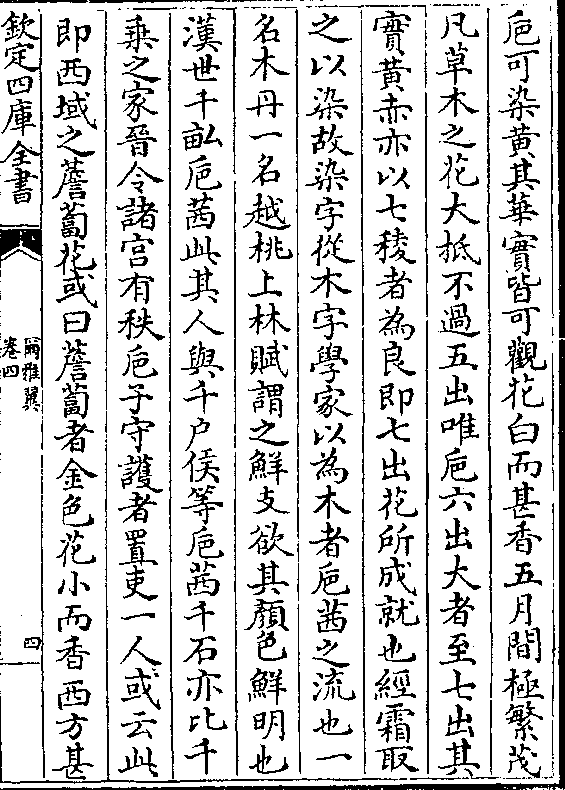 巵可染黄其華實皆可觀花白而甚香五月間極繁茂
凡草木之花大抵不過五出唯巵六出大者至七出其
實黄赤亦以七稜者為良即七出花所成就也經霜取
之以染故染字從木字學家以為木者巵茜之流也一
名木丹一名越桃上林賦謂之鮮支欲其顏色鮮明也
漢世千畝巵茜此其人與千户侯等巵茜千石亦比千
乗之家晉令諸宫有秩巵子守護者置吏一人或云此
即西域之薝蔔花或曰薝蔔者金色花小而香西方甚
欽定四庫全書
爾雅翼
卷四
四